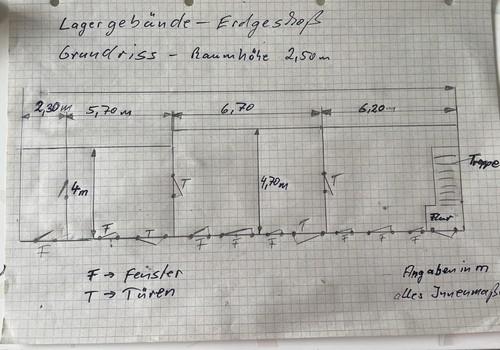 Lagergebäude - Erdgeshoß
Grundriss - Raumhöhe 2,50m
2,30m 5,70m 6,70 6,20m
Treppe
4m T 4,70m T
Flur
F F T F F F T F F F
F → Fenster
T → Türen
Angaben in m
alles Innenmaß